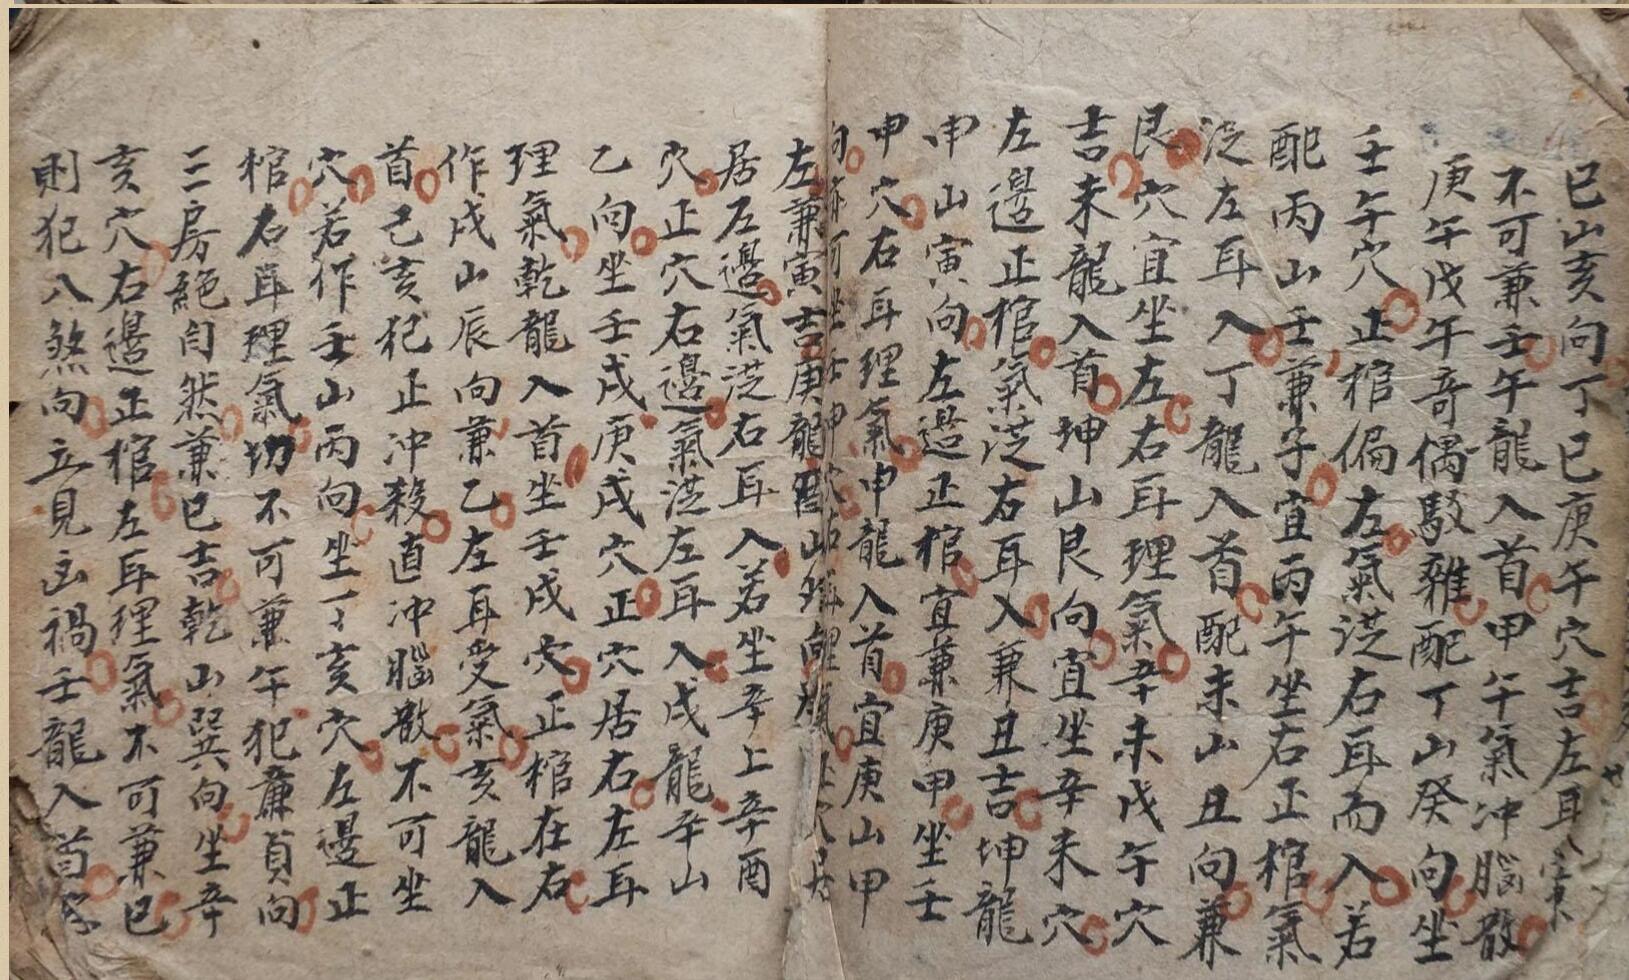 巳山亥向丁巳庚午穴吉左耳
不可兼壬午龍入首甲午氣冲腦散
庚午戊午奇偶駁雜配丁山癸向坐
壬午穴正棺偏左氣從右耳而入若
配丙山壬兼子宜丙午坐右正棺氣
從左耳入丁龍入首配未山丑向兼
艮穴宜坐左右耳理氣辛未戊午穴
吉未龍入首坤山艮向宜坐辛未穴
左邊正棺氣從右耳入兼丑吉坤龍
申山寅向左邊正棺宜兼庚甲坐壬
申穴右耳理氣申龍入首宜庚山甲
向
左兼寅吉庚龍酉山
居左邊氣從右耳入若坐辛上辛酉
穴正穴右邊氣從左耳入戌龍辛山
乙向坐壬戌庚戌穴正穴居右左耳
理氣乾龍入首坐壬戌穴正棺在右
作戌山辰向兼乙左耳受氣亥龍入
首己亥犯正冲殺直冲腦散不可坐
穴若作壬山丙向坐丁亥穴左邊正
棺右耳理氣切不可兼午犯兼向
三房絕自然兼巳吉乾山巽向坐辛
亥穴右邊正棺左耳理氣不可兼巳
則犯八煞向立見凶禍壬龍入首